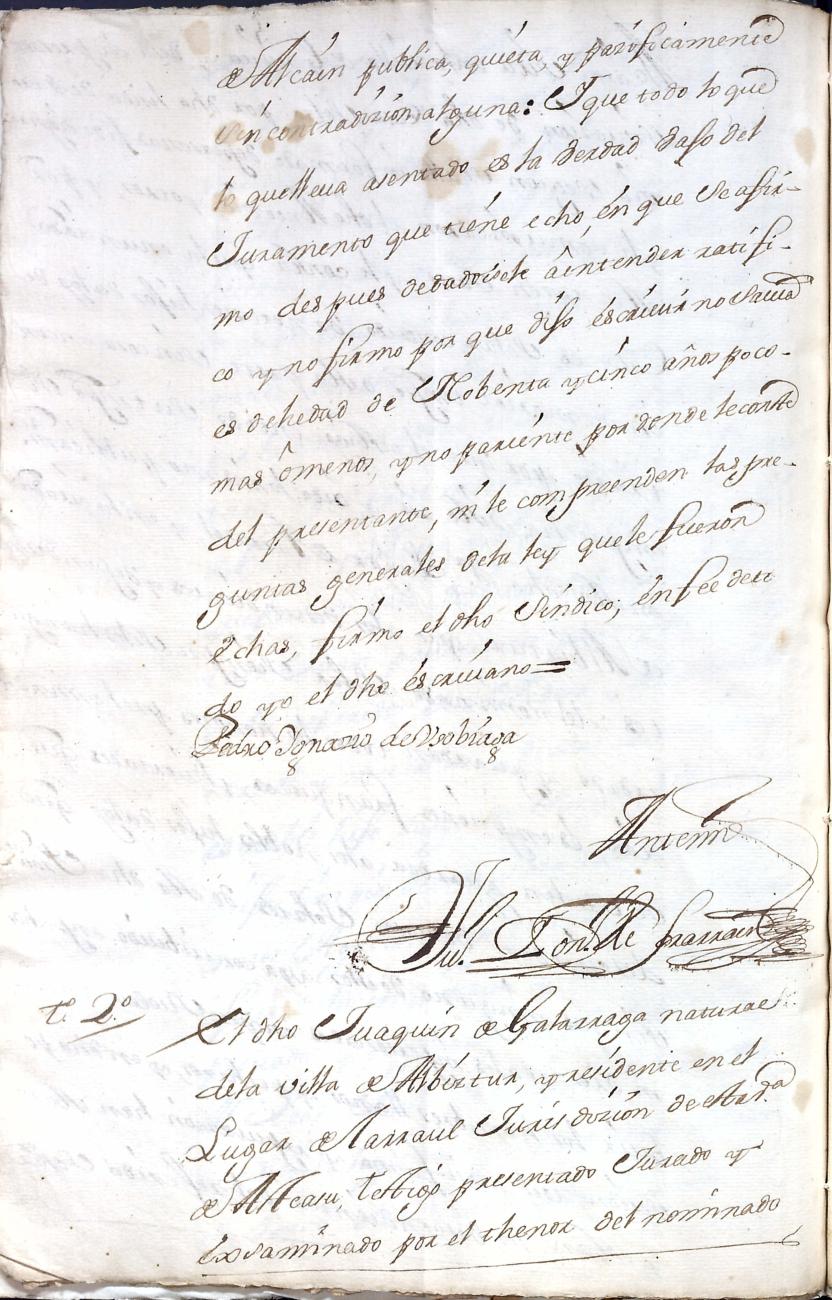 de Alcain publica, quieta, y pazificamente
sin contradizion alguna: Y que todo lo que
lo que lleua asentado es la verdad vaso del
Juramento que tiene echo, en que se afir-
mo despues de dadosele â entender ratifi-
co y no firmo por que dijo escriuir no Sauia
es de hedad de Nobenta y cinco años poco-
mas ô menos, y no pariente por donde le conste
del presentante, ni le compreenden las pre-
guntas generales dela ley que le fueron
echas, firmo el dho Sindico, en fee de to
do yo el dho escriuano=
Pedro Ygnazio de Vsobiaga
Antemi
Larrain
t.º 2.º El dho Juaquin de Galarraga natural
dela villa de Albiztur, y residente en el
Lugar de Larraul Jurisdizion de esta r.da
de Asteasu, testigo presentado Jurado y
exsaminado por el thenor del nominado